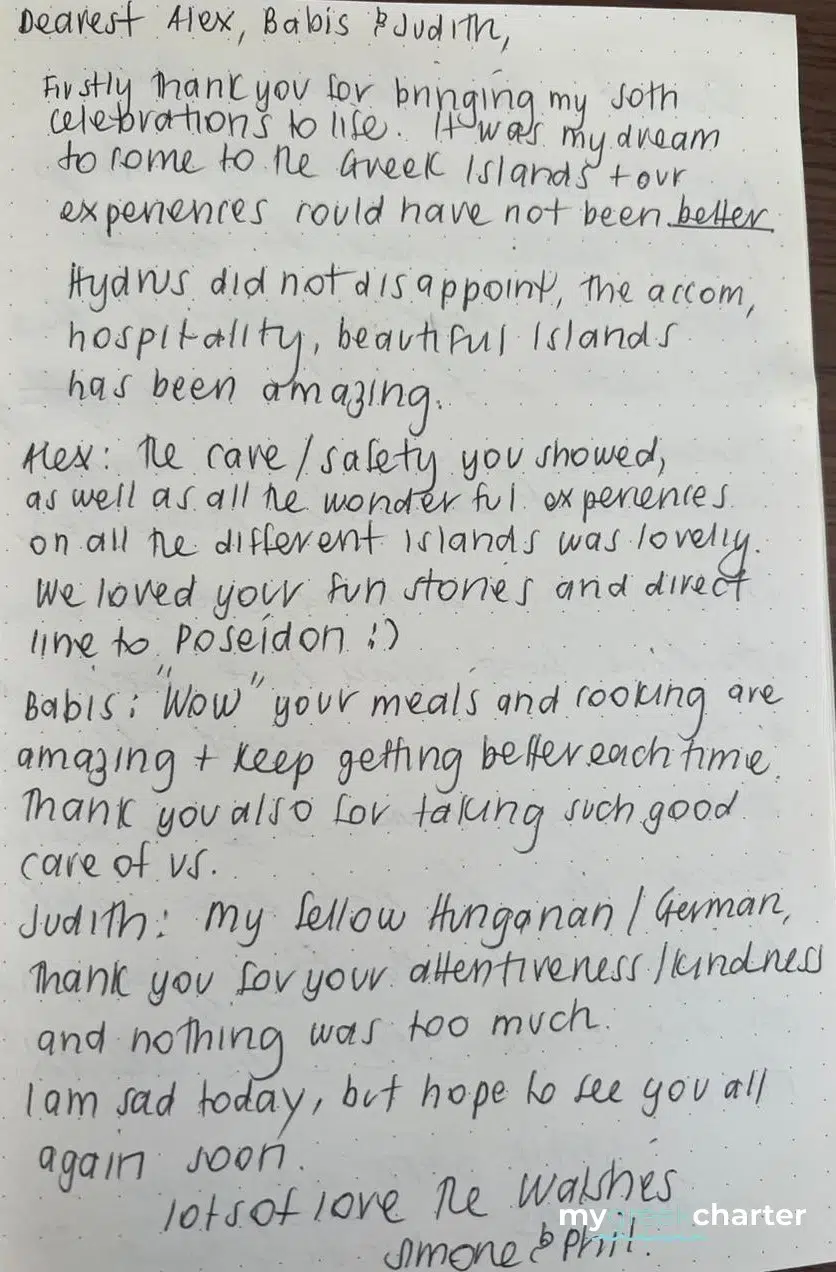 Dearest Alex, Babis & Judith,
Firstly thank you for bringing my 50th
celebrations to life. It was my dream
to come to the Greek Islands + our
experiences could have not been better.
Hydrus did not disappoint, the accom,
hospitality, beautiful Islands
has been amazing.
Alex: The care / safety you showed,
as well as all the wonderful experiences
on all the different Islands was lovely.
We loved your fun stories and direct
line to Poseidon :)
Babis: "Wow" your meals and cooking are
amazing + keep getting better each time.
Thank you also for taking such good
care of us.
Judith: My fellow Hungarian / German,
Thank you for your attentiveness / kindness
and nothing was too much.
I am sad today, but hope to see you all
again soon.
lots of love The Walshes
Simone & Phil.
mygreekcharter